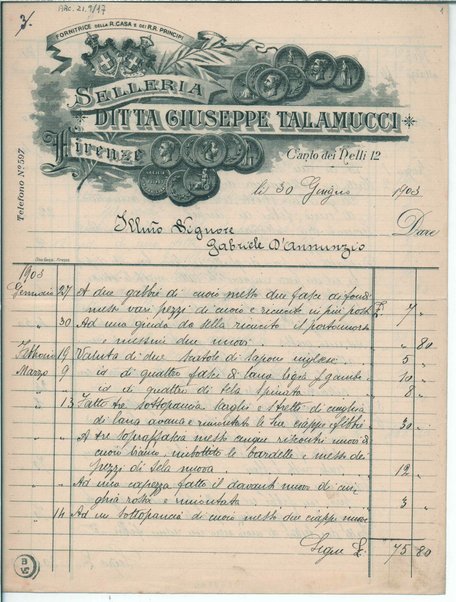 3.
ARC. 21.9/17
1
FORNITRICE DELLA R. CASA E DEI R.R. PRINCIPI
SELLERIA
DITTA GIUSEPPE TALAMUCCI
Firenze
Canto dei Nelli 12
Telefono N.º 597
li 30 Giugno 1903
Illmo Signore Dare
Gabriele D'Annunzio
1903
Gennaio 27 A due gabbie di cuoio messo due fasce di fondi
messo vari pezzi di cuoio e ricucito in più posti £ 7 "
" 30 Ad una guida da sella ricucito il portamorso
e messivi due nuovi " 80
Febbraio 19 Valuta di due scatole di sapone inglese 5 "
Marzo 9 id di quattro fasce di lana legia gambe 10 "
id di quattro di tela spinata 8 "
" 13 Fatto tre sottopancia larghi e stretti di cinghia
di lana avana e rimontato le sue ciappe e fibbie 30 "
" " A tre sopraffascia messo cinque riscontri nuovi di
cuoio bianco, imbottito le bardelle e messo dei
pezzi di tela nuova 12 "
" " Ad una capezza fatto il davanti nuovo di cin=
ghia rossa e rimontata 3 "
" 14 Ad un sottopancia di cuoio messo due ciappe nuove
Segue £ 75 80